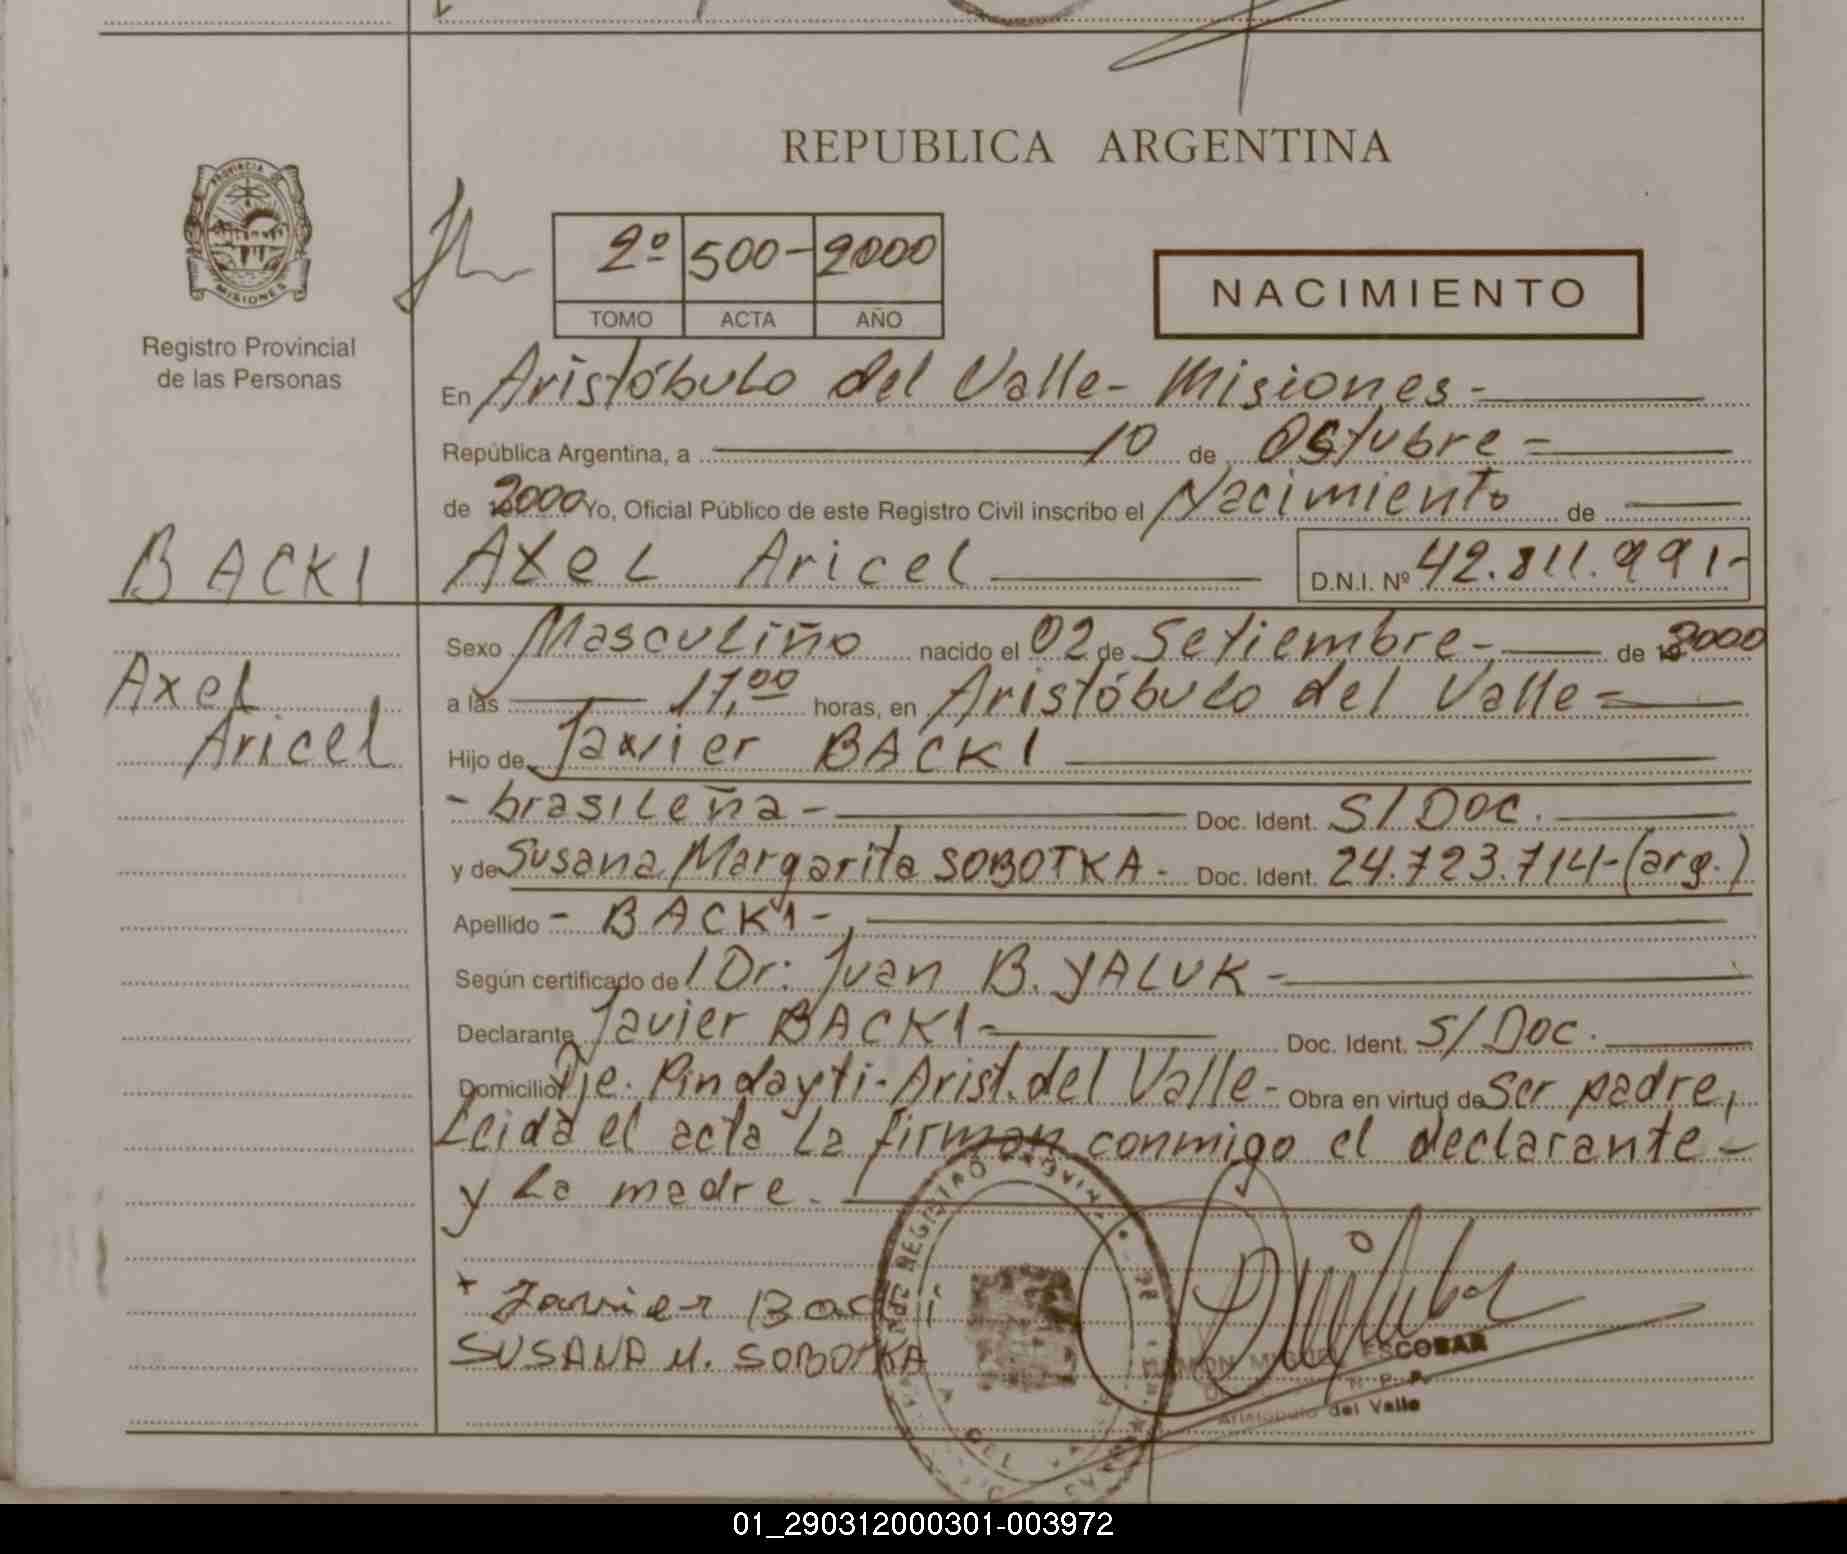 REPUBLICA ARGENTINA
PROVINCIA DE
MISIONES
Registro Provincial
de las Personas
2º 500- 2000
TOMO ACTA AÑO
NACIMIENTO
En Aristóbulo del Valle- Misiones-
República Argentina, a 10 de Octubre -
de 2000 Yo, Oficial Público de este Registro Civil inscribo el Nacimiento de
BACKI Axel Aricel D.N.I. Nº 42.811.991-
Sexo Masculiño nacido el 02 de Setiembre- de 2000
Axel
a las 17,00 horas, en Aristóbulo del Valle-
Aricel
Hijo de Javier BACKI
- brasileña - Doc. Ident. S/Doc.
y de Susana Margarita SOBOTKA- Doc. Ident. 24.723.714-(arg.)
Apellido - BACKI-
Según certificado de Dr: Juan B. YALUK-
Declarante Javier BACKI- Doc. Ident. S/Doc.
Domicilio Pje. Pindayti-Arist. del Valle- Obra en virtud de ser padre,
Leida el acta la firman conmigo el declarante-
y la madre.
+ Javier Backi
SUSANA M. SOBOTKA
RAMON MIGUEL ESCOBAR
Aristobulo del Valle
01_290312000301-003972